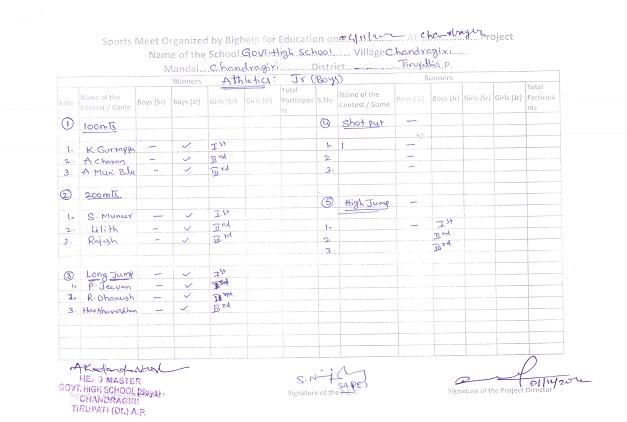 Sports Meet Organized by Bighelp for Education on At Chandragiri Project
Name of the School Govt. High School Village Chandragiri
Mandal Chandragiri District A.P.
Athletics: Jr (Boys)
Winners Runners
S.No Name of the Contest / Game Boys (Sr) Boys (Jr) Girls (Sr) Girls (Jr) Total Participants S.No. Name of the Contest / Game Boys (Sr) Boys (Jr) Girls (Sr) Girls (Jr) Total Participants
① 100mts ④ Shot put —
1. K Gurrappa — ✓ Ist 1. —
2. A Charan — ✓ IInd 2 —
3. A Muni Balu — ✓ IIIrd 3. —
② 200mts ⑤ High Jump —
1. S. Muneer — ✓ Ist 1. — Ist
2. Lilith — ✓ IInd 2. IInd
3. Rajesh — ✓ IIIrd 3. IIIrd
③ Long Jump — ✓ Ist
1. P. Jeevan — ✓
2. R. Dhanush — ✓
3. Harshavardhan — ✓ IIIrd
HEAD MASTER
GOVT. HIGH SCHOOL (Boys)
CHANDRAGIRI
TIRUPATI (Dt.) A.P.
Signature of the P.E.T
Signature of the Project Director